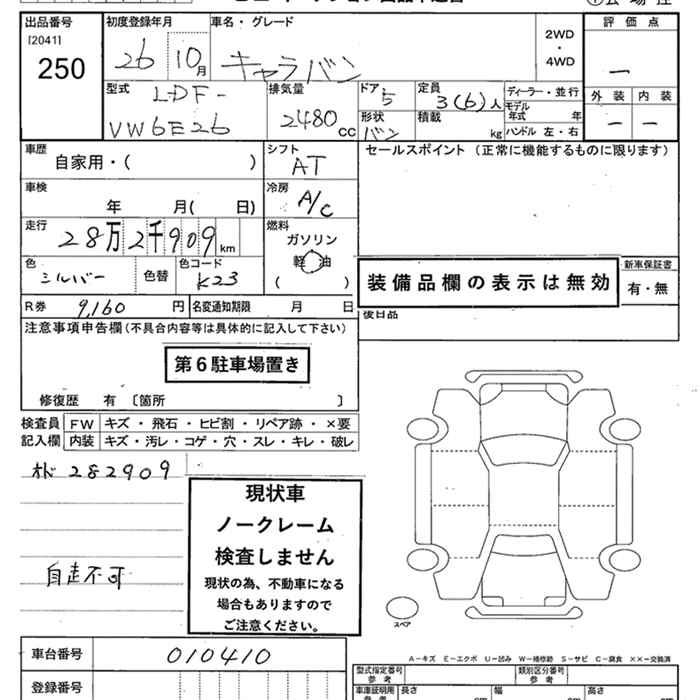 出品番号 初度登録年月 車名・グレード 評価点
[2041]
250
26 10月 キャラバン
2WD
・
4WD
－
型式 LDF-
VW6E26
排気量
2480cc
ドア 5
形状 バン
定員 3(6)人
積載 kg
ディーラー・並行
モデル年式 年
ハンドル 左・右
外装 内装
－ －
車歴
自家用・( )
シフト
AT
セールスポイント（正常に機能するものに限ります）
車検
年 月( 日)
冷房
A/C
走行
28万2千909km
燃料
ガソリン
軽油
( )
色
シルバー
色替
色コード
K23
装備品欄の表示は無効
新車保証書
有・無
R券 9,160円
名変通知期限 月 日
後日品
注意事項申告欄(不具合内容等は具体的に記入して下さい)
第6駐車場置き
修復歴 有〔箇所 〕
検査員記入欄
FW キズ・飛石・ヒビ割・リペア跡・×要
内装 キズ・汚レ・コゲ・穴・スレ・キレ・破レ
282909
自走不可
現状車
ノークレーム
検査しません
現状の為、不動車になる
場合もありますので
ご注意ください。
スペア
車台番号 010410
登録番号
A－キズ E－エクボ U－凹み W－補修跡 S－サビ C－腐食 ××－交換済
型式指定番号 参考
類別区分番号 参考
車庫証明用 参考
長さ cm
幅 cm
高さ cm